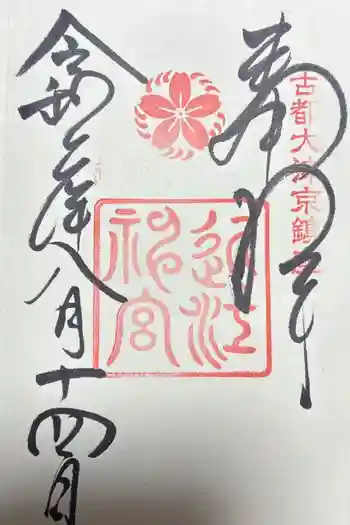 奉拝
古都大津京鎮座
近江神宮
令和六年八月十四日